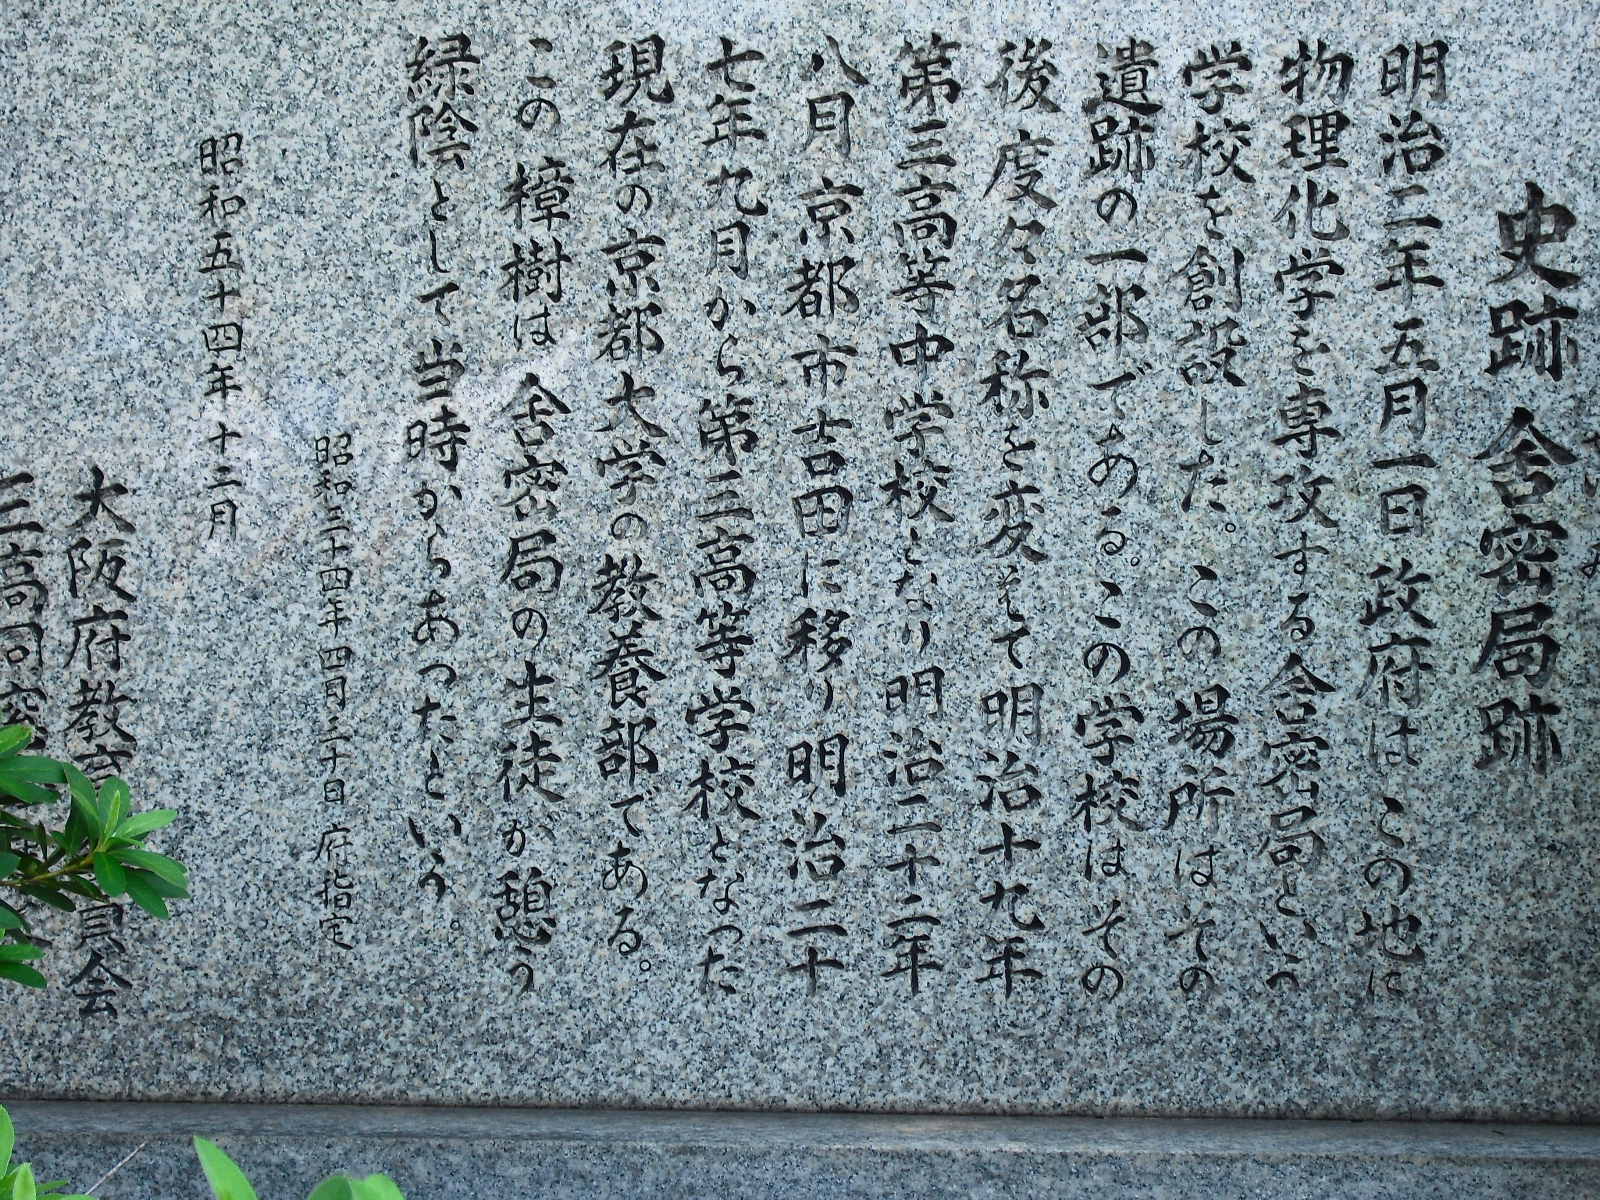 史跡 舎密局跡
明治二年五月一日政府はこの地に
物理化学を専攻する舎密局という
学校を創設した。この場所はその
遺跡の一部である。この学校はその
後度々名称を変えて明治十九年
第三高等中学校となり明治二十二年
八月京都市吉田に移り明治二十
七年九月から第三高等学校となった
現在の京都大学の教養部である。
この樟樹は舎密局の生徒が憩う
緑陰として当時からあったという。
昭和三十四年四月三十日 府指定
昭和五十四年十二月
大阪府教育 員会
三高同窓